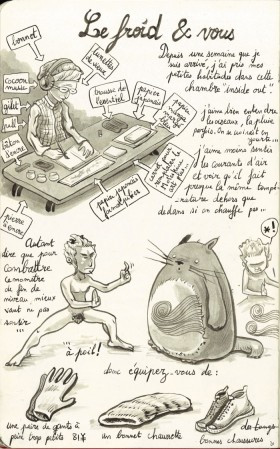 Le froid & vous
bonnet
lunettes de vue
cocoon mask
gilet
pull
bâton d'encre
pierre à encre
trousse de l'essentiel
papier japonais
papier
papier japonais
Depuis une semaine que je
suis arrivé, j'ai pris mes
petites habitudes dans cette
chambre "inside out"
j'aime bien entendre
les oiseaux, la pluie
parfois. On se croirait en
yourte...
j'aime moins sentir
les courants d'air
et voir qu'il fait
presque la même tempé-
rature dehors que
dedans si on chauffe pas...
Autant
dire que pour
combattre
le monstre
de fin de
niveau mieux
vaut ne pas
sortir
...
... à poil!
*!
donc équipez-vous de:
une paire de gants à
peine trop petits
un bonnet chaussette
des tongs
bonnes chaussures